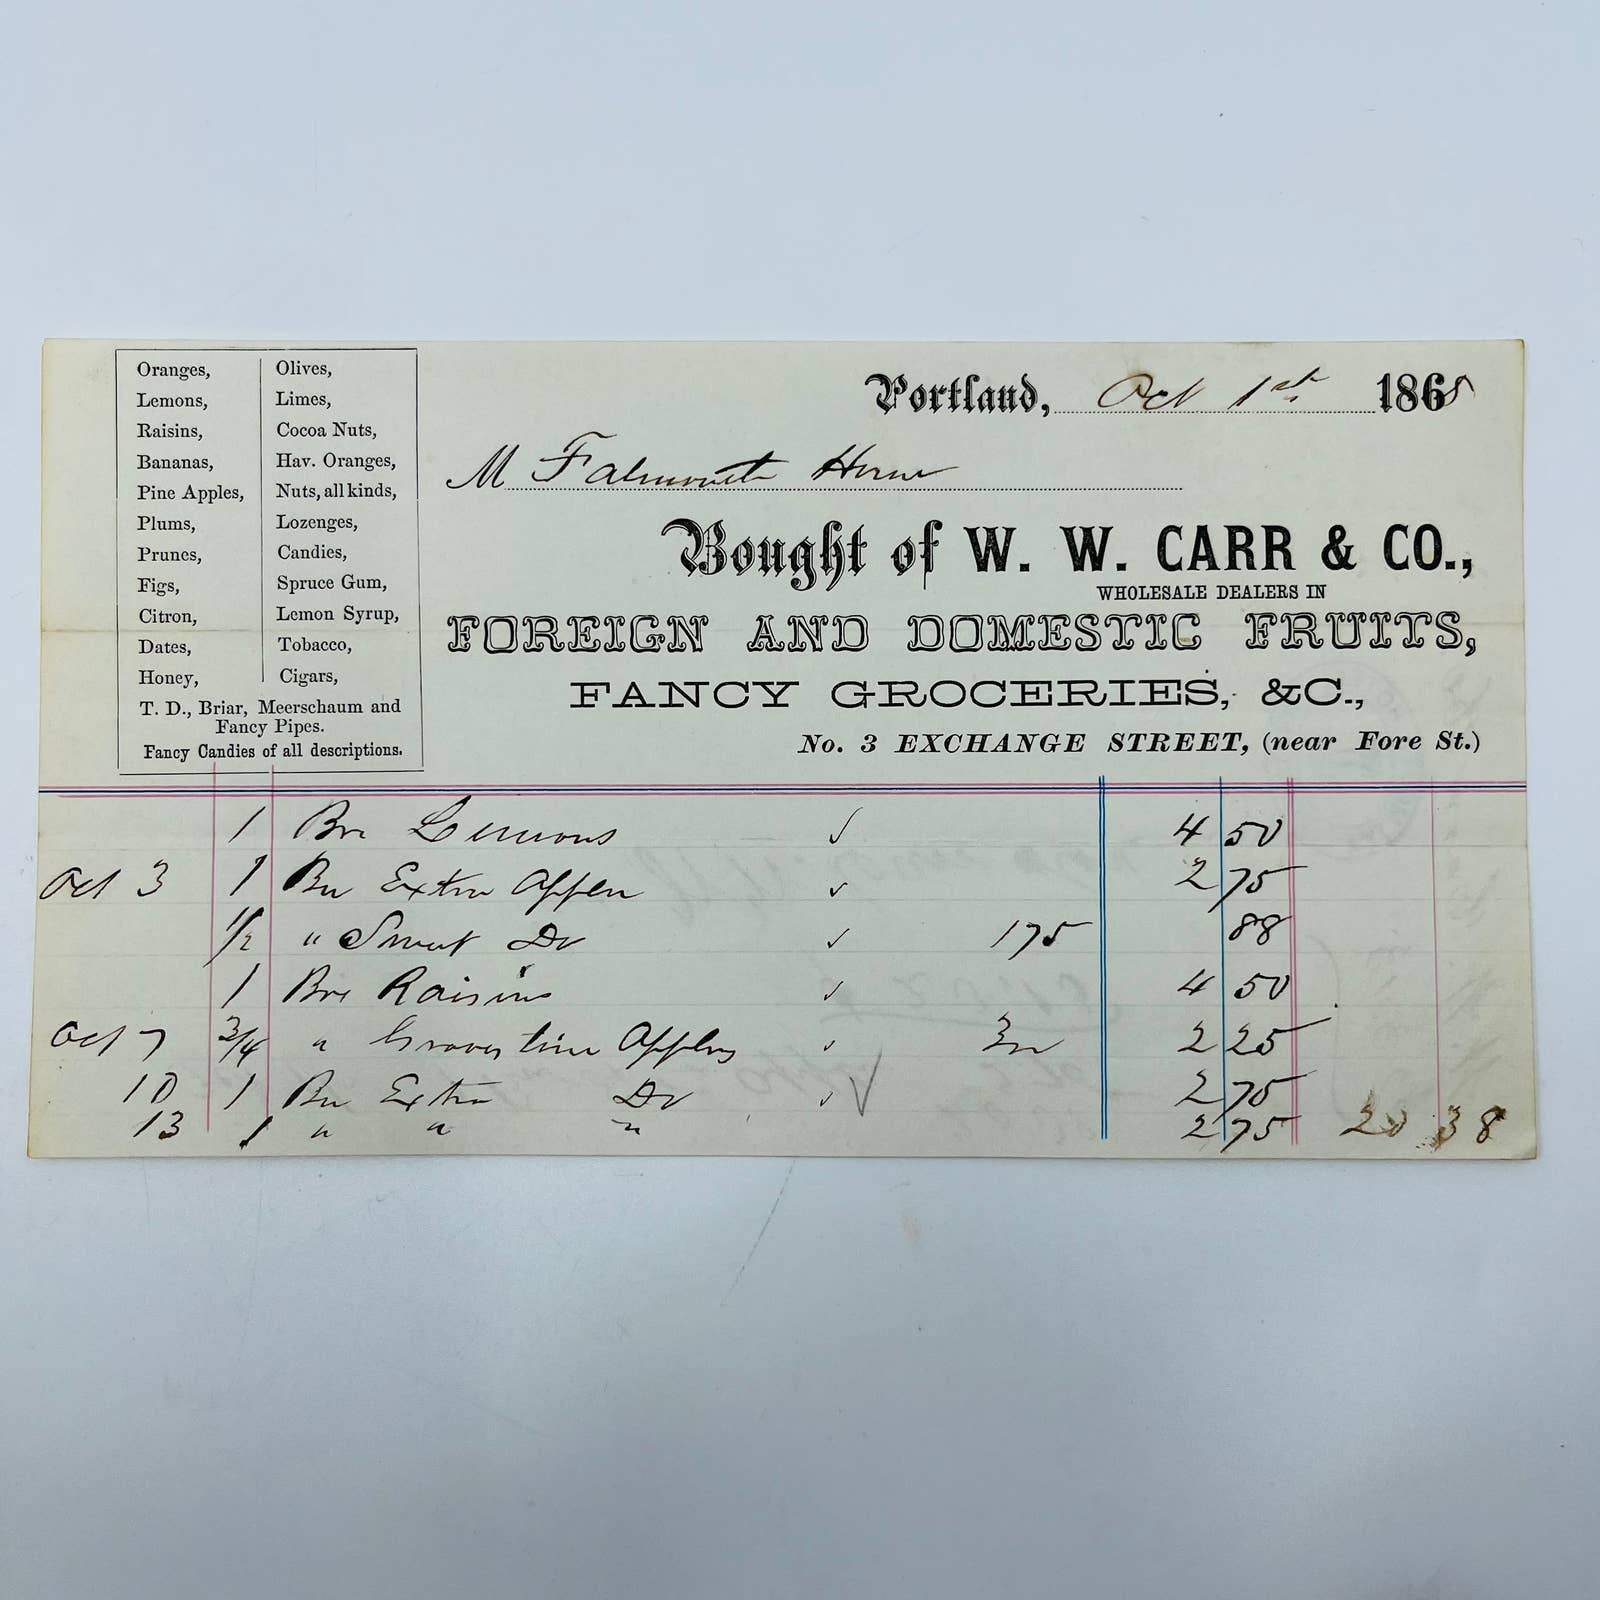 Oranges,
Lemons,
Raisins,
Bananas,
Pine Apples,
Plums,
Prunes,
Figs,
Citron,
Dates,
Honey,
Olives,
Limes,
Cocoa Nuts,
Hav. Oranges,
Nuts, all kinds,
Lozenges,
Candies,
Spruce Gum,
Lemon Syrup,
Tobacco,
Cigars,
T. D., Briar, Meerschaum and
Fancy Pipes.
Fancy Candies of all descriptions.
Portland, Oct 1st 1868
M Falmouth House
Bought of W. W. CARR & CO.,
WHOLESALE DEALERS IN
FOREIGN AND DOMESTIC FRUITS,
FANCY GROCERIES, &C.,
No. 3 EXCHANGE STREET, (near Fore St.)
1 Box Lemons 4 50
Oct 3 1 Extra Apples 2 75
1/2 " Sweet Do 175 88
1 Box Raisins 4 50
Oct 7 3/4 " Gravestine Apples 2 25
10 1 Extra Do 2 75
13 1 " " " 2 75 20 38